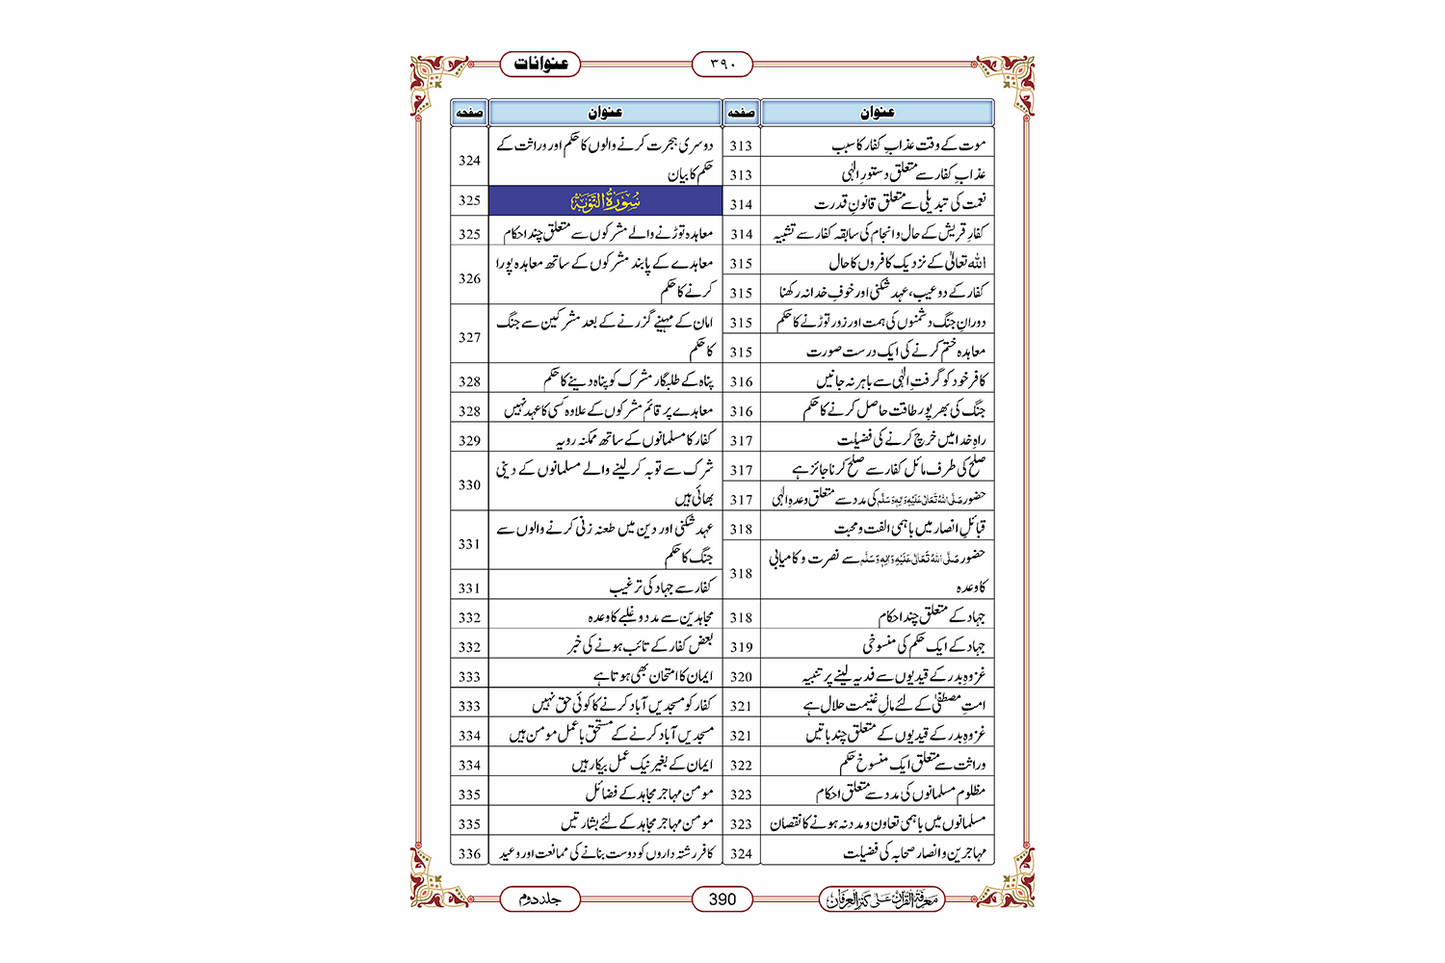 عنوانات
۳۹۰
عنوان
صفحہ
موت کے وقت عذابِ کفار کا سبب
313
عذابِ کفار سے متعلق دستورِ الٰہی
313
نعمت کی تبدیلی سے متعلق قانونِ قدرت
314
کفارِ قریش کے حال و انجام کی سابقہ کفار سے تشبیہ
314
اللہ تعالیٰ کے نزدیک کافروں کا حال
315
کفار کے دو عیب، عہد شکنی اور خوفِ خدا نہ رکھنا
315
دورانِ جنگ دشمنوں کی ہمت اور زور توڑنے کا حکم
315
معاہدہ ختم کرنے کی ایک درست صورت
315
کافر خود کو گرفتِ الٰہی سے باہر نہ جانیں
316
جنگ کی بھرپور طاقت حاصل کرنے کا حکم
316
راہِ خدا میں خرچ کرنے کی فضیلت
317
صلح کی طرف مائل کفار سے صلح کرنا جائز ہے
317
حضور صَلَّی اللہُ تَعَالٰی عَلَیْہِ وَاٰلِہٖ وَسَلَّم کی مدد سے متعلق وعدہِ الٰہی
317
قبائلِ انصار میں باہمی الفت و محبت
318
حضور صَلَّی اللہُ تَعَالٰی عَلَیْہِ وَاٰلِہٖ وَسَلَّم سے نصرت و کامیابی
کا وعدہ
318
جہاد کے متعلق چند احکام
318
جہاد کے ایک حکم کی منسوخی
319
غزوہِ بدر کے قیدیوں سے فدیہ لینے پر تنبیہ
320
امتِ مصطفیٰ کے لئے مالِ غنیمت حلال ہے
321
غزوہِ بدر کے قیدیوں کے متعلق چند باتیں
321
وراثت سے متعلق ایک منسوخ حکم
322
مظلوم مسلمانوں کی مدد سے متعلق احکام
323
مسلمانوں میں باہمی تعاون و مدد نہ ہونے کا نقصان
323
مہاجرین و انصار صحابہ کی فضیلت
324
عنوان
صفحہ
دوسری ہجرت کرنے والوں کا حکم اور وراثت کے
حکم کا بیان
324
سُوْرَۃُ التَّوْبَۃ
325
معاہدہ توڑنے والے مشرکوں سے متعلق چند احکام
325
معاہدے کے پابند مشرکوں کے ساتھ معاہدہ پورا
کرنے کا حکم
326
امان کے مہینے گزرنے کے بعد مشرکین سے جنگ
کا حکم
327
پناہ کے طلبگار مشرک کو پناہ دینے کا حکم
328
معاہدے پر قائم مشرکوں کے علاوہ کسی کا عہد نہیں
328
کفار کا مسلمانوں کے ساتھ ممکنہ رویہ
329
شرک سے توبہ کر لینے والے مسلمانوں کے دینی
بھائی ہیں
330
عہد شکنی اور دین میں طعنہ زنی کرنے والوں سے
جنگ کا حکم
331
کفار سے جہاد کی ترغیب
331
مجاہدین سے مدد و غلبے کا وعدہ
332
بعض کفار کے تائب ہونے کی خبر
332
ایمان کا امتحان بھی ہوتا ہے
333
کفار کو مسجدیں آباد کرنے کا کوئی حق نہیں
333
مسجدیں آباد کرنے کے مستحق با عمل مومن ہیں
334
ایمان کے بغیر نیک عمل بیکار ہیں
334
مومن مہاجر مجاہد کے فضائل
335
مومن مہاجر مجاہد کے لئے بشارتیں
335
کافر رشتہ داروں کو دوست بنانے کی ممانعت اور وعید
336
معرفۃ القرآن علیٰ کنز العرفان
390
جلد دوم